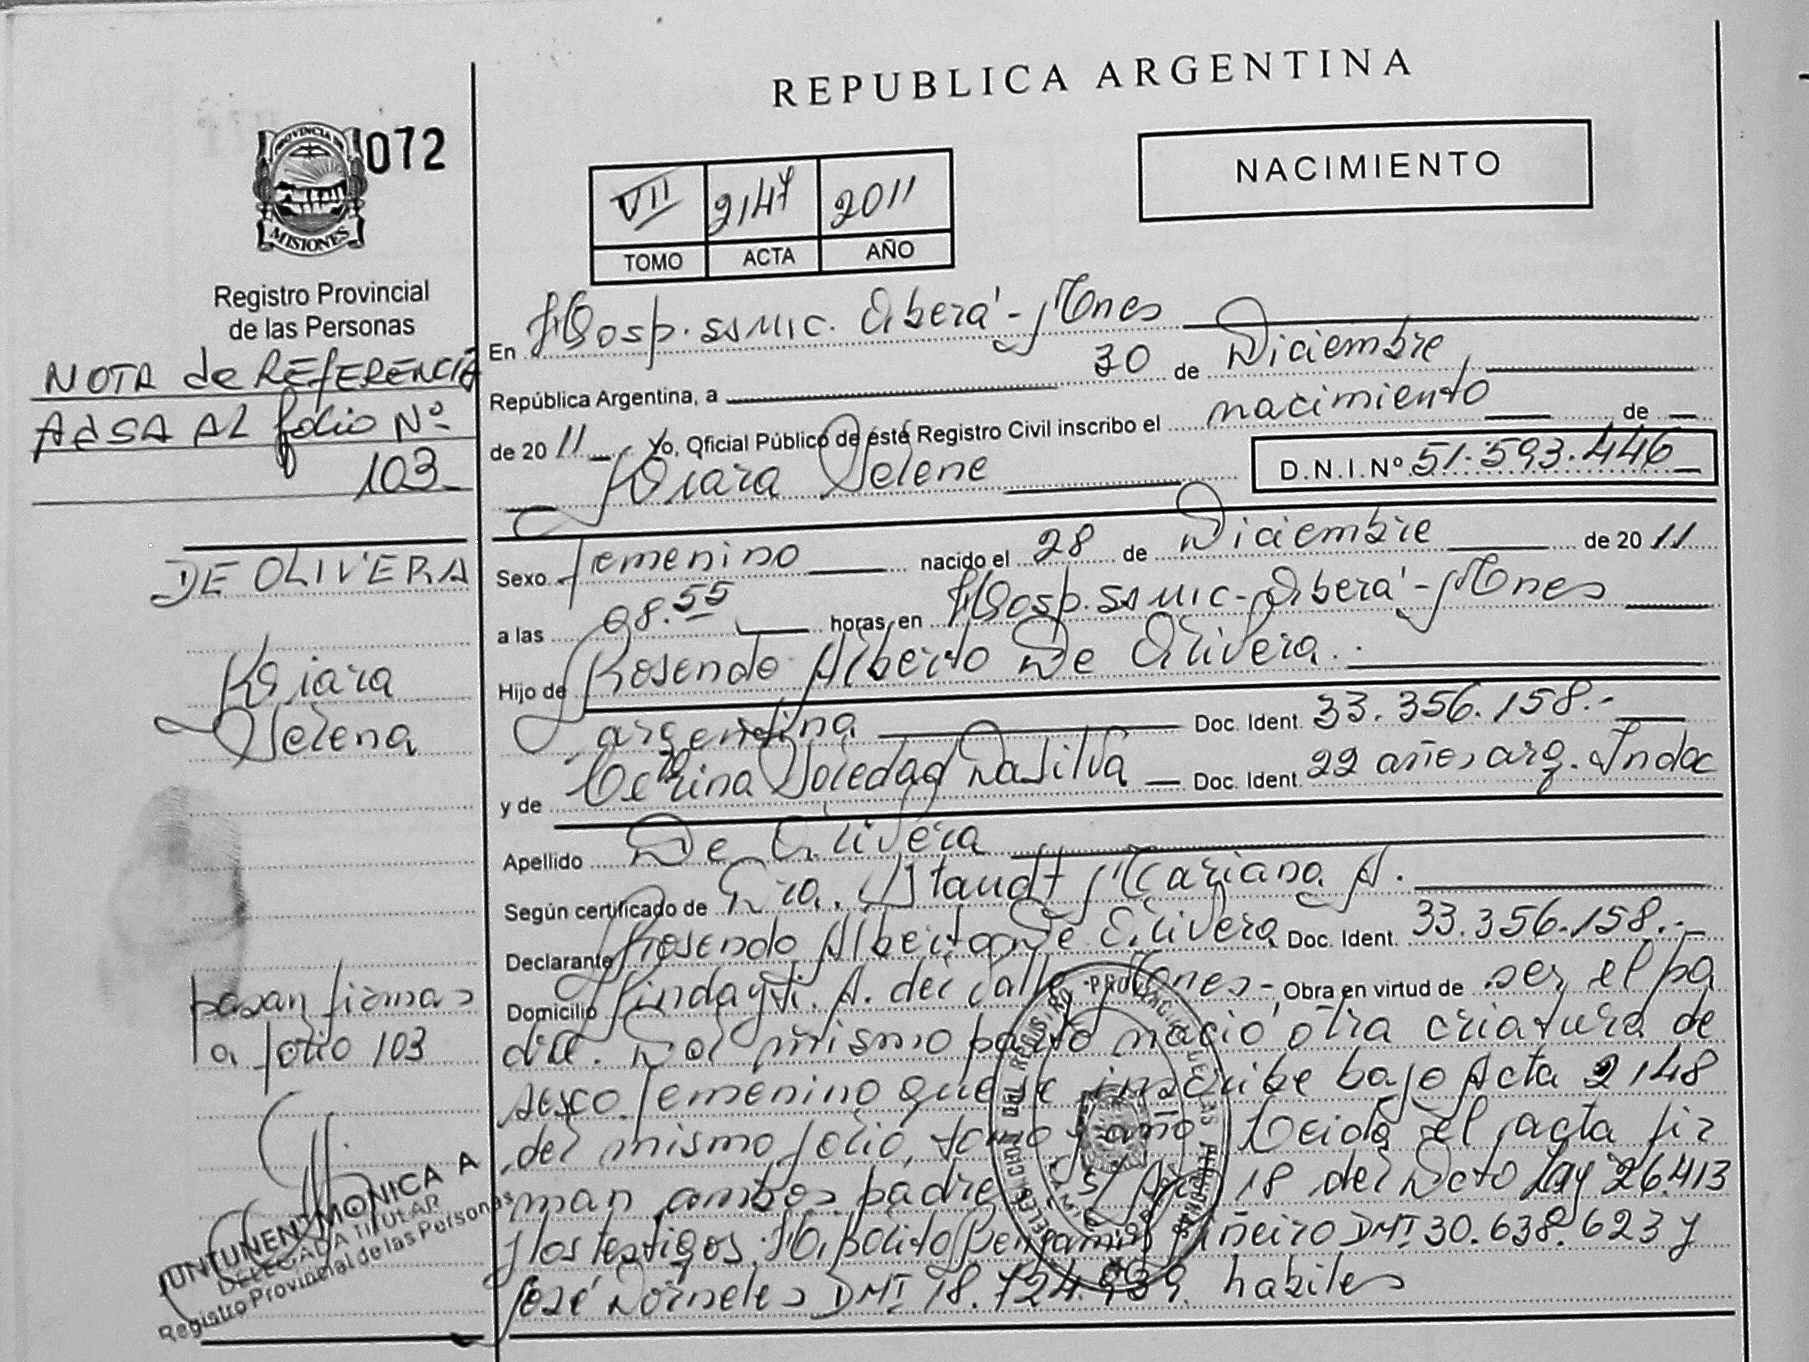 REPUBLICA ARGENTINA
PROVINCIA DE
MISIONES
072
Registro Provincial
de las Personas
NACIMIENTO
VII 2147 2011
TOMO ACTA AÑO
NOTA de REFERENCIA
AdSA AL folio Nº
103
DE OLIVERA
Kiara
Selena
pasan firmas
a folio 103
MONICA A
DELEGADA TITULAR
Registro Provincial de las Personas
En Hosp. SAMIC. Oberá - Mnes
República Argentina, a 30 de Diciembre
de 2011 Yo, Oficial Público de éste Registro Civil inscribo el nacimiento de
Kiara Selene D.N.I.Nº 51.593.446
Sexo femenino nacido el 28 de Diciembre de 2011
a las 08.55 horas, en Hosp. SAMIC - Oberá - Mnes
Hijo de Rosendo Alberto De Olivera
argentina Doc. Ident. 33.356.158.-
y de Soledad Da Silva Doc. Ident. 22 años arg. Indoc
Apellido De Olivera
Según certificado de Dra. Staudt Mariana A.
Declarante Rosendo Alberto De Olivera Doc. Ident. 33.356.158.-
Domicilio Pindayti. A. del Valle Mnes - Obra en virtud de ser el pa
dre. Del mismo parto nació otra criatura de
sexo femenino que se inscribe bajo Acta 2148
del mismo folio, tomo y año Leida el acta fir
man ambos padres 18 del Dcto Ley 26.413
y los testigos. Hipolito Benjamin Piñeiro DNI 30.638.623 y
José Dorneles DNI 18.724.939. habiles